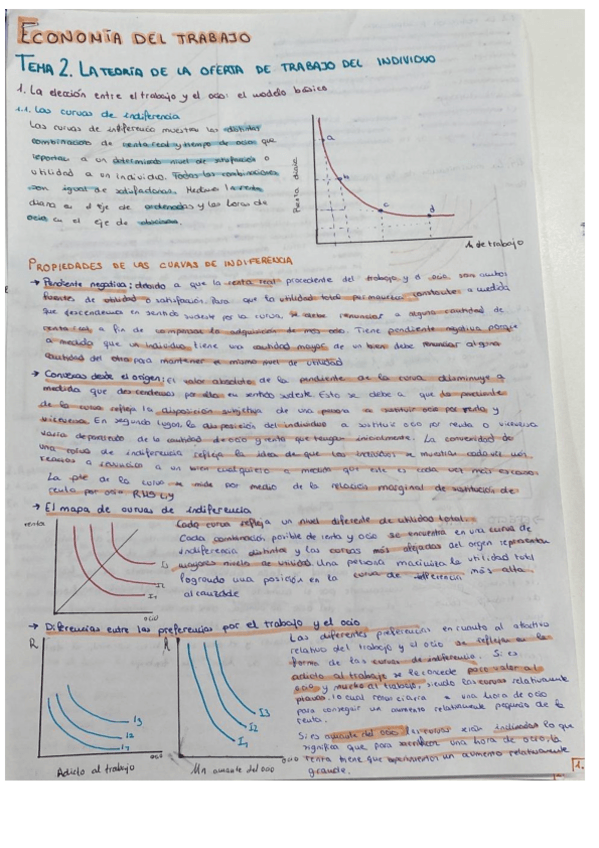 ECONOMÍA DEL TRABAJO
TEMA 2. LA TEORÍA DE LA OFERTA DE TRABAJO DEL INDIVIDUO
1. La elección entre el trabajo y el ocio: el modelo básico
1.1. Las curvas de indiferencia
Las curvas de indiferencia muestran las distintas
combinaciones de renta real y tiempo de ocio que
reportan a un determinado nivel de satisfacción o
utilidad a un individuo. Todas las combinaciones
son igual de satisfactorias. Medimos la renta
diaria en el eje de ordenadas y las horas de
ocio en el eje de abscisas.
Renta diaria
a
b
c
d
h de trabajo
PROPIEDADES DE LAS CURVAS DE INDIFERENCIA
→ Pendiente negativa: debido a que la renta real procedente del trabajo y el ocio son ambos
fuentes de utilidad o satisfacción. Para que la utilidad total permanezca constante a medida
que descendemos en sentido sudeste por la curva, se debe renunciar a alguna cantidad de
renta real a fin de compensar la adquisición de más ocio. Tiene pendiente negativa porque
a medida que un individuo tiene una cantidad mayor de un bien debe renunciar alguna
cantidad del otro para mantener el mismo nivel de utilidad
→ Convexas desde el origen: el valor absoluto de la pendiente de la curva disminuye a
medida que descendemos por ella en sentido sudeste. Esto se debe a que la pendiente
de la curva refleja la disposición subjetiva de una persona a sustituir ocio por renta y
viceversa. En segundo lugar, la disposición del individuo a sustituir ocio por renta o viceversa
varía dependiendo de la cantidad de ocio y renta que tengan inicialmente. La convexidad de
una curva de indiferencia refleja la idea de que los individuos se muestran cada vez más
reacios a renunciar a un bien cualquiera a medida que este es cada vez más escaso.
La pte de la curva se mide por medio de la relación marginal de sustitución de
renta por ocio RMS
→ El mapa de curvas de indiferencia
renta
I3
I2
I1
ocio
Cada curva refleja un nivel diferente de utilidad total.
Cada combinación posible de renta y ocio se encuentra en una curva de
indiferencia distinta y las curvas más alejadas del origen representan
mayores niveles de utilidad. Una persona maximiza la utilidad total
logrando una posición en la curva de indiferencia más alta
alcanzable
→ Diferencias entre las preferencias por el trabajo y el ocio
R
I3
I2
I1
ocio
Adicto al trabajo
R
I3
I2
I1
ocio
Un amante del ocio
Las diferentes preferencias en cuanto al atractivo
relativo del trabajo y el ocio se reflejan en la
forma de las curvas de indiferencia. Si es
adicto al trabajo se le concede poco valor al
ocio y mucho al trabajo, siendo las curvas relativamente
planas, lo cual renunciaría a una hora de ocio
para conseguir un aumento relativamente pequeño de la
renta.
Si es amante del ocio las curvas están inclinadas lo que
significa que para sacrificar una hora de ocio, la
renta tiene que experimentar un aumento relativamente
grande.
1.